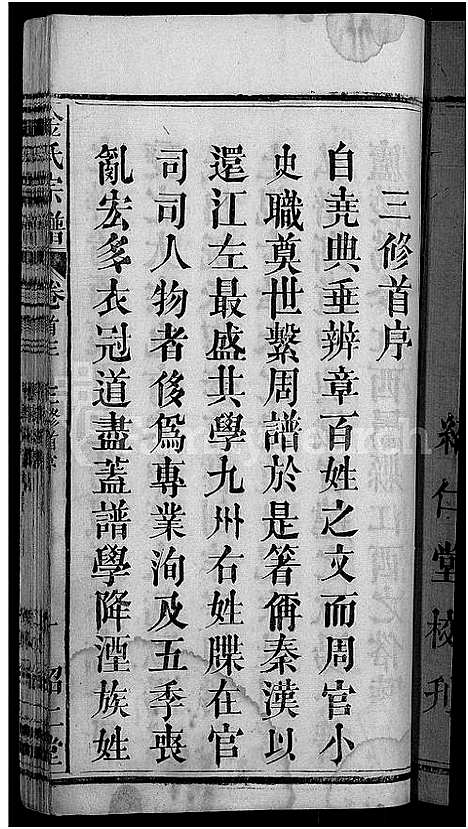 仁堂校刊
三修首序
自堯典垂辨章百姓之文而周官小
史職奠世繫周譜於是箸偁秦漢以
還江左最盛其學九州右姓牒在官
司司人物者侈爲專業洵及五季喪
亂宏多衣冠道盡蓋譜學降湮族姓
氏宗譜
卷首